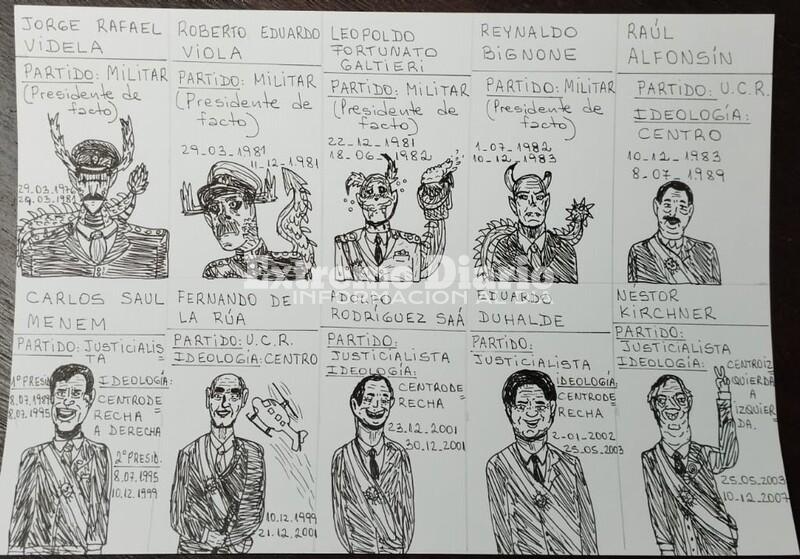 JORGE RAFAEL
VIDELA
PARTIDO: MILITAR
(Presidente de
facto)
29.03.1976
29.03.1981
ROBERTO EDUARDO
VIOLA
PARTIDO: MILITAR
(Presidente de
facto)
29-03-1981
11-12-1981
LEOPOLDO
FORTUNATO
GALTIERI
PARTIDO: MILITAR
(Presidente de
facto)
22-12-1981
18-06-1982
REYNALDO
BIGNONE
PARTIDO: MILITAR
(Presidente de
facto)
1-07-1982
10-12-1983
RAÚL
ALFONSÍN
PARTIDO: U.C.R.
IDEOLOGÍA:
CENTRO
10-12-1983
8-07-1989
Extremo Diario
INFORMACION AL DIA
CARLOS SAUL
MENEM
PARTIDO: JUSTICIALIS
TA
1º PRESID.
8.07.1989
8.07.1995
IDEOLOGÍA:
CENTRODE
RECHA
A DERECHA
2º PRESID.
8.07.1995
10.12.1999
FERNANDO DE
LA RÚA
PARTIDO: U.C.R.
IDEOLOGÍA: CENTRO
10.12.1999
21.12.2001
ADOLFO
RODRÍGUEZ SAÁ
PARTIDO:
JUSTICIALISTA
IDEOLOGÍA:
CENTRODE
RECHA
23.12-2001
30.12.2001
EDUARDO
DUHALDE
PARTIDO:
JUSTICIALISTA
IDEOLOGÍA:
CENTRODE
RECHA
2-01-2002
25-05-2003
NÉSTOR
KIRCHNER
PARTIDO:
JUSTICIALISTA
IDEOLOGÍA:
CENTROIZ
QUIERDA
A
IZQUIER
DA.
25.05.2003
10-12-2007